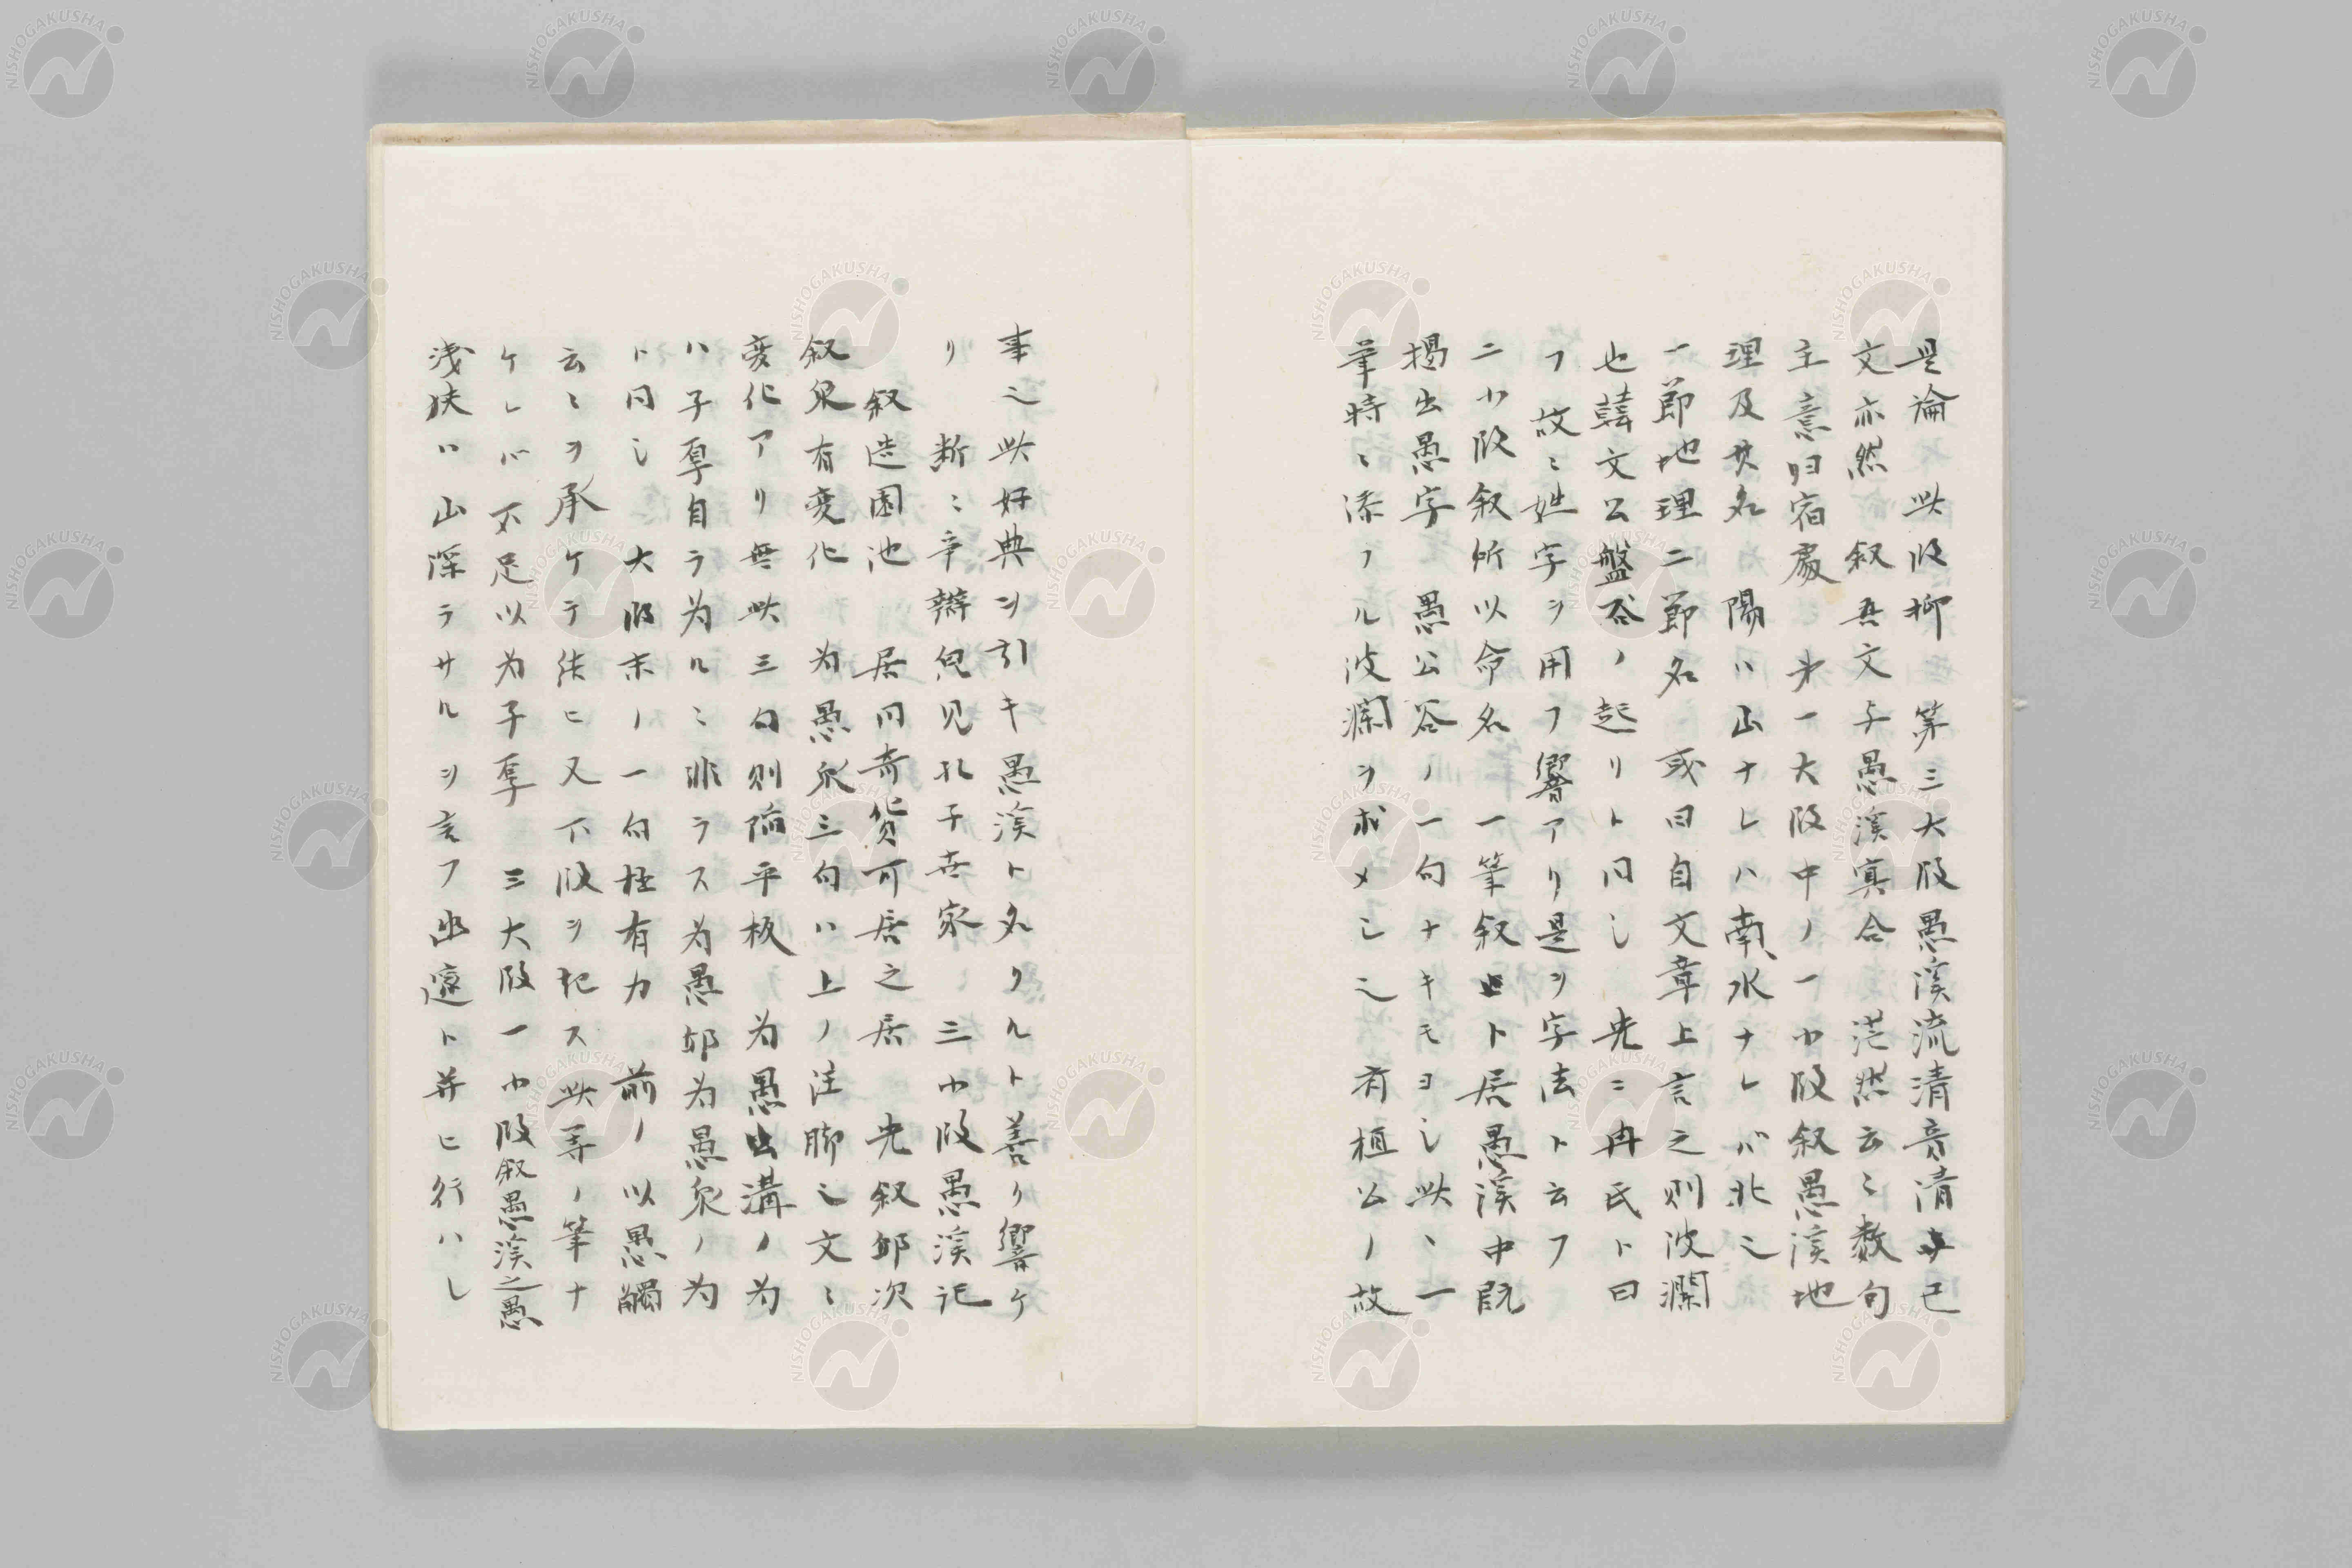 是論 此段抑 第三大段愚溪流清音清与已
文亦然 叙吾文与愚溪寘合 茫然云々数句
主意归宿處 第一大段中ノ一小段叙愚溪地
理及其名 陽ハ山ナレハ南水ナレバ北ニ
一節地理二節名 或曰自文章上言之則波瀾
也韓文公盤谷ノ起リト同シ 先ニ冉氏ト曰
フ故ニ姓字ヲ用フ響アリ是ヲ字法ト云フ
二小段叙所以命名 一筆叙出ト居愚溪中既
揭出愚字 愚公谷ノ一句ナキモヨシ此ヽ一
筆特ニ添フル波瀾ヲ求メシ之 有植公ノ故
事之此好典ヲ引キ愚溪ト名クルト善ク響ケ
リ 断ニ辛辯兒見孔子世家 三小段愚溪記
叙造園池 居同奇貨可居之居 先叙邱次
叙泉有変化 为愚泉三句ハ上ノ注脚之文ニ
変化アリ無此三句則陥平板 为愚出溝ノ为
ハ子厚自ラ为ルニ非ラス为愚邱为愚泉ノ为
ト同シ 大段末ノ一句极有力 前ノ以愚觸
云々ヲ承ケテ結ヒ又下段ヲ起ス此等ノ筆ナ
ケレバ不足以为子厚 三大段一小段叙愚溪之愚
浅狭ハ山深ラサルヲ言フ幽邃ト并ヒ行ハレ